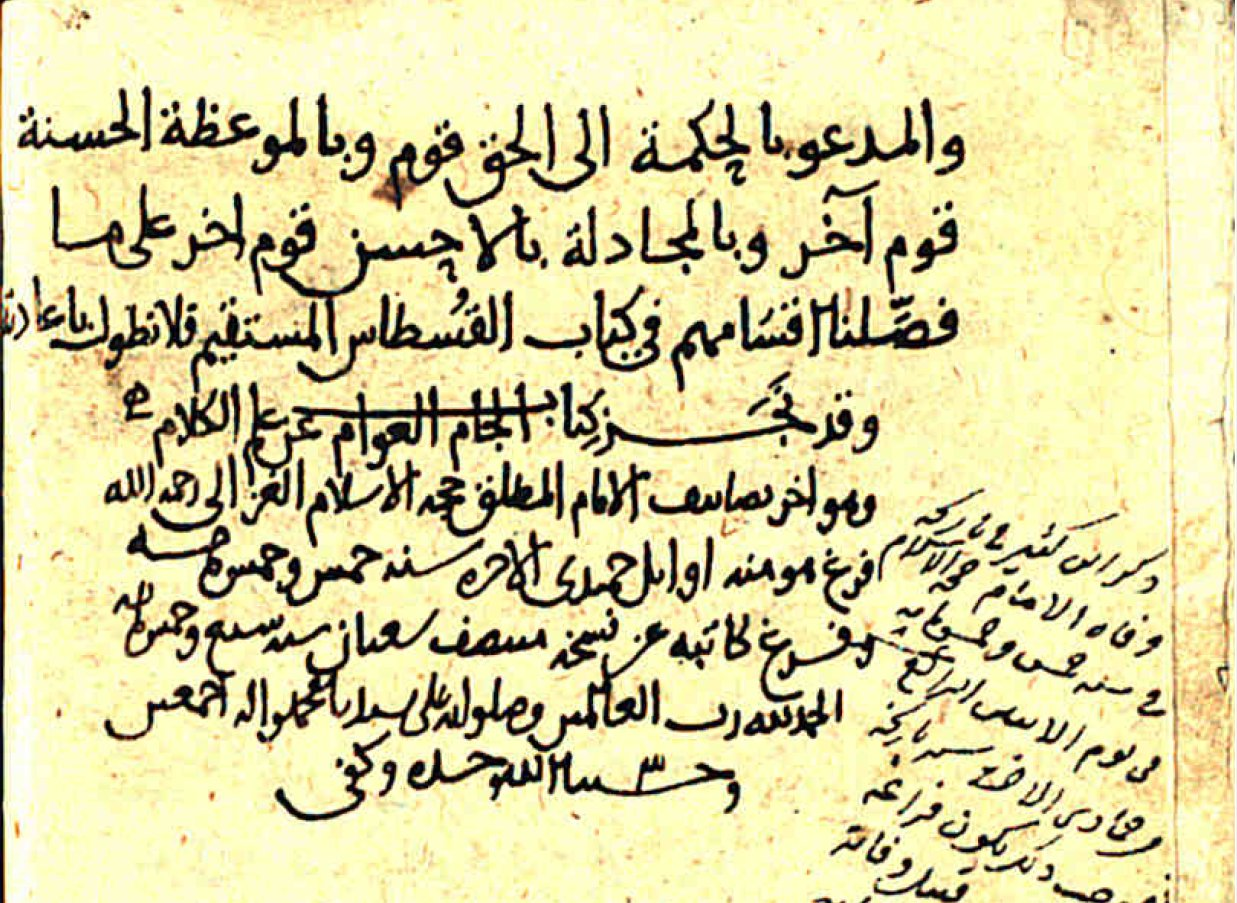 والمدعو بالحكمة الى الحق قوم وبالموعظة الحسنة
قوم آخر وبالمجادلة بالاحسن قوم اخر على ما
فصّلنا اقسامهم في كتاب القُسطاس المستقيم فلا نطول باعادته
وقد نَجَز كتاب الجام العوام عن علم الكلام
وهو اخر تصانيف الامام المطلق حجه الاسلام الغزالى رحمه الله
فرغ هو منه اوايل جمدى الاخره سنه خمس وخمس مايه
وفرغ كاتبه عن نسخه منتصف شعبان سنه سبع وخمس مايه
الحمد لله رب العالمين وصلوته على سيدنا محمد واله اجمعين
وحسبنا الله وحده وكفى
ذكر ابن كثير في تاريخه
وفاه الامام حجه الاسلام
في سنه خمس وخمسمايه
في يوم الاثنين الرابع عشر
من جمادى الاخره سنه تاريخه
ذلك يكون فراغه
قبيل وفاته